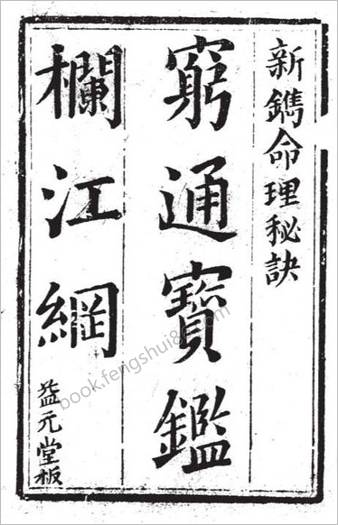 新鐫命理秘訣
窮通寶鑑
欄江網
益元堂板
book.fengshui86.com